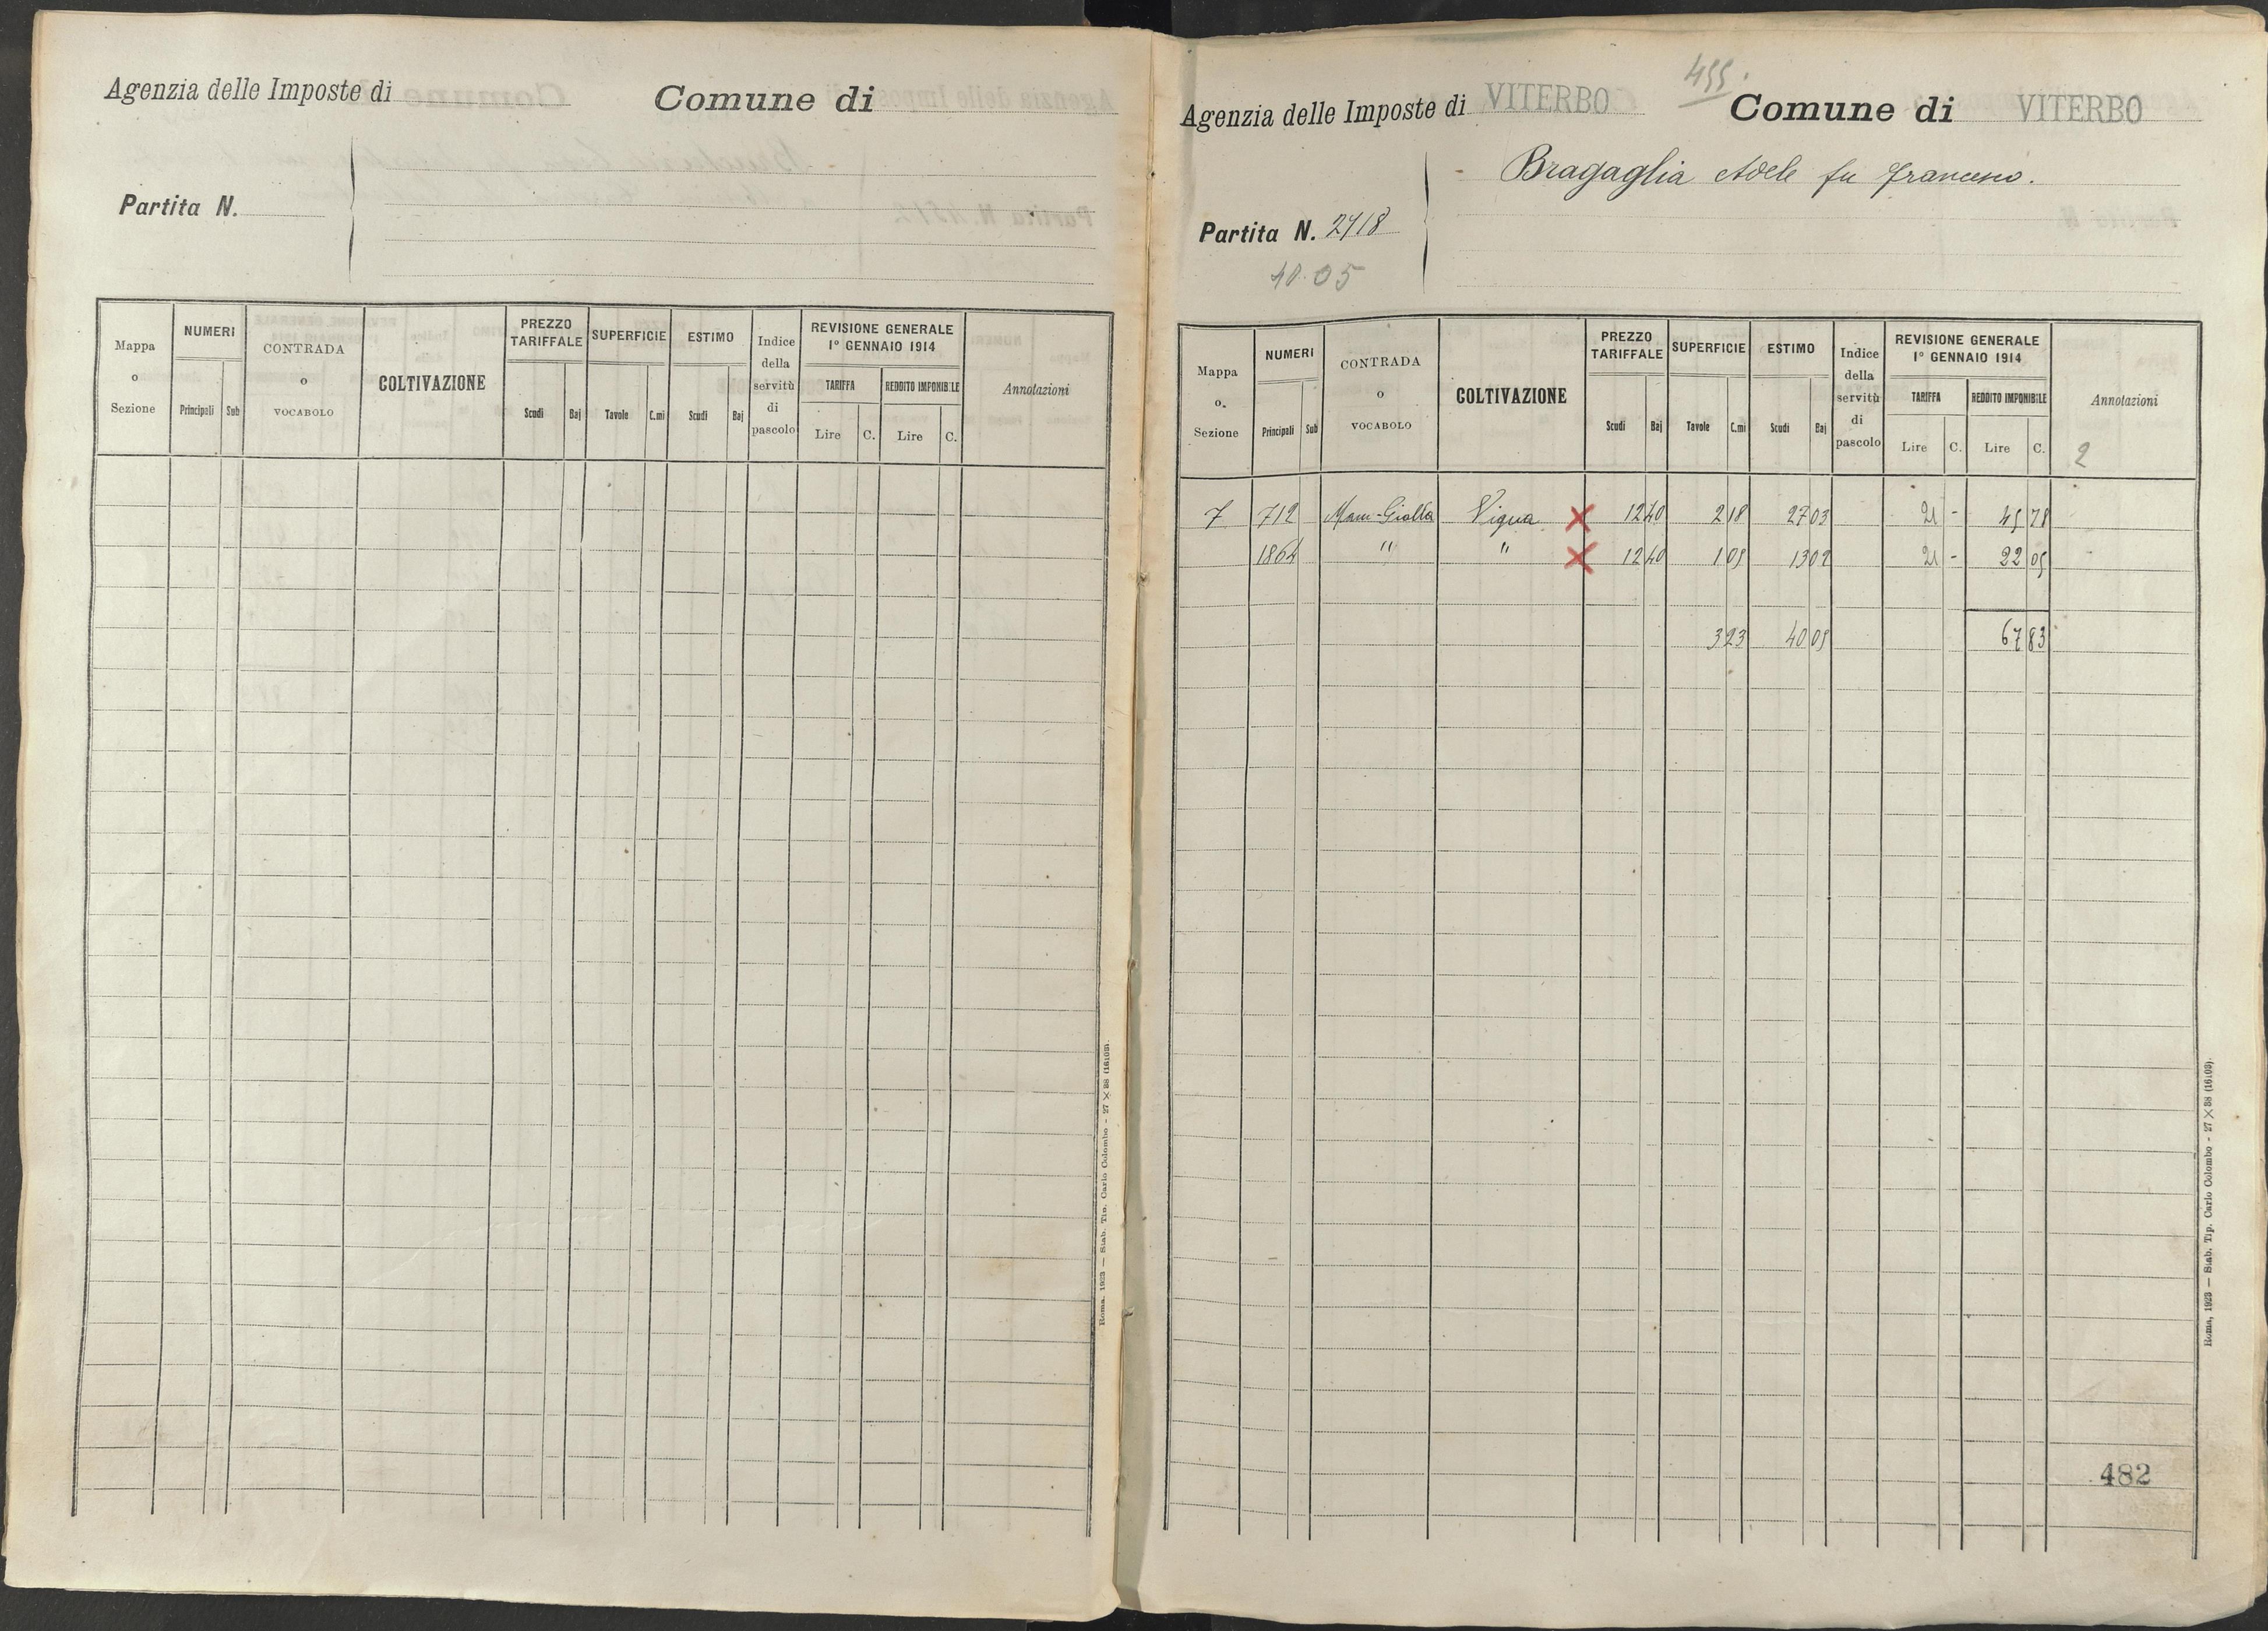 Agenzia delle Imposte di Comune di
Partita N.
Mappa o Sezione NUMERI CONTRADA o VOCABOLO COLTIVAZIONE PREZZO TARIFFALE SUPERFICIE ESTIMO Indice della servitù di pascolo REVISIONE GENERALE 1° GENNAIO 1914 Annotazioni
TARIFFA REDDITO IMPONIBILE
Principali Sub Scudi Baj Tavole C.mi Scudi Baj Lire C. Lire C.
Roma, 1923 — Stab. Tip. Carlo Colombo - 27 × 38 (16103).
455.
Agenzia delle Imposte di VITERBO Comune di VITERBO
Bragaglia Adele fu Francesco.
Partita N. 2718
40.05
Mappa o Sezione NUMERI CONTRADA o VOCABOLO COLTIVAZIONE PREZZO TARIFFALE SUPERFICIE ESTIMO Indice della servitù di pascolo REVISIONE GENERALE 1° GENNAIO 1914 Annotazioni
TARIFFA REDDITO IMPONIBILE
Principali Sub Scudi Baj Tavole C.mi Scudi Baj Lire C. Lire C.
2
7 712 Mam-Gialla Vigna X 12 40 2 18 27 03 21 - 45 78
1864 " " X 12 40 1 05 13 02 21 - 22 05
3 23 40 05 67 83
482
Roma, 1923 — Stab. Tip. Carlo Colombo - 27 × 38 (16103).